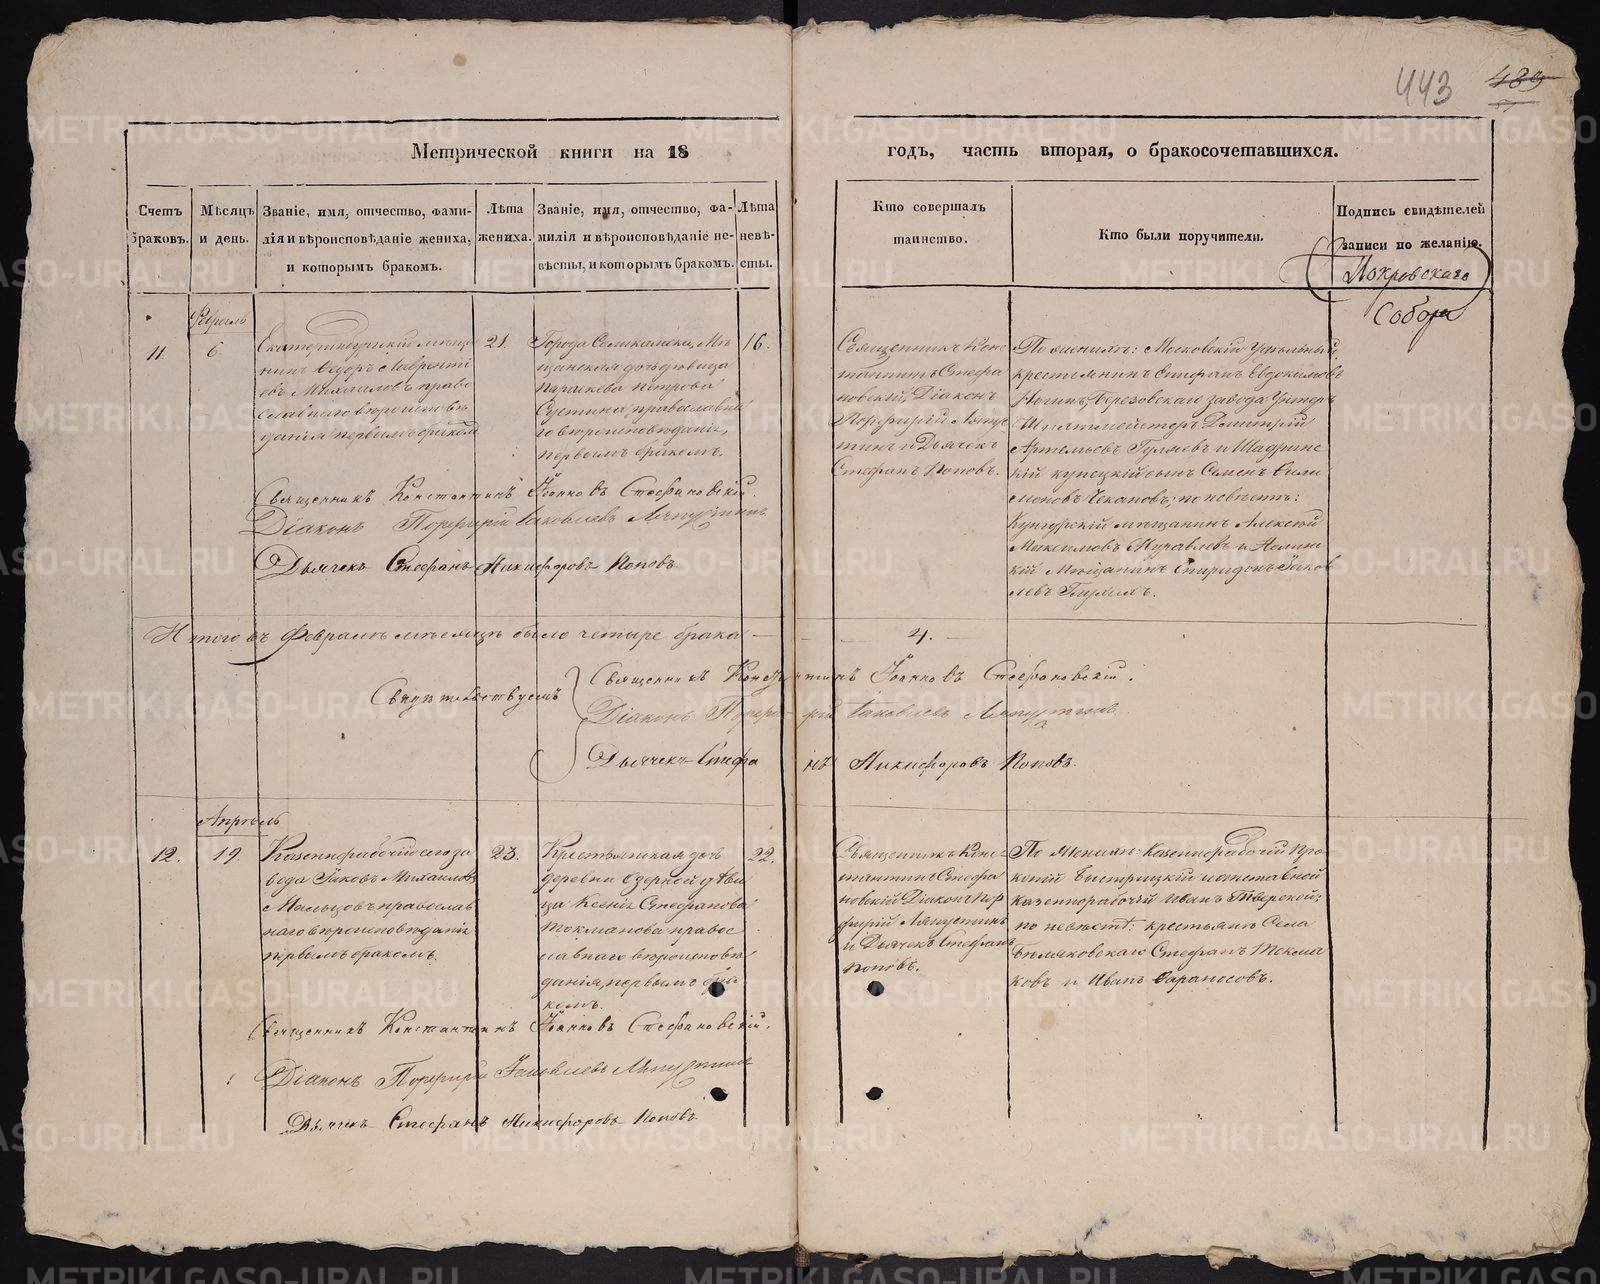 443 489
Метрической книги на 18 годъ, часть вторая, о бракосочетавшихся.
Счетъ браковъ.
Мѣсяцъ и день.
Званіе, имя, отчество, фами-
лія и вѣроисповѣданіе жениха,
и которымъ бракомъ.
Лѣта
жениха.
Званіе, имя, отчество, фа-
милія и вѣроисповѣданіе не-
вѣсты, и которымъ бракомъ.
Лѣта
невѣ-
сты.
Кто совершалъ
таинство.
Кто были поручители.
Подпись свидѣтелей
записи по желанію.
Покровскаго
Собора
Февраль
11.
6.
Екатеринбургскій мѣща
нинъ Ѳедоръ Лаврентi
евъ Михаиловъ право
славнаго вѣроисповѣ
данія первымъ бракомъ
21.
Города Соликамска, Мѣ
щанская дочь дѣвица
Параскева Петрова
православна
го вѣроисповѣданія,
первымъ бракомъ.
16.
Священникъ Конс
тантинъ Стефа
новскій, Діаконъ
Порфирій Ляпус
тинъ и Дьячекъ
Стефанъ Поповъ.
По женихѣ: Московскій Удѣльный
крестьянинъ Стефанъ Евдокимовъ
Березовскаго завода Унтеръ
Шихтмейстеръ Димитрій
Артемьевъ Гуляевъ и Шадринс
кій купецкій сынъ Семенъ Фили
моновъ Чекановъ; по невѣстѣ:
Кунгурскій мѣщанинъ Алексѣй
Максимовъ Муравлевъ и
кій Мѣщанинъ Спиридонъ Іаков
левъ
Священникъ Константинъ Іоанновъ Стефановскій.
Діаконъ Порфирій Іаковлевъ Ляпустинъ
Дьячекъ Стефанъ Никифоровъ Поповъ
Итого въ Февралѣ мѣсяцѣ было четыре брака — 4. —
Свидѣтельствуемъ
Священникъ Константинъ Іоанновъ Стефановскій.
Діаконъ Порфирій Іаковлевъ Ляпустинъ
Дьячекъ Стефанъ Никифоровъ Поповъ.
Апрѣль
12.
19.
Казеннорабочій сего за
вода Іаковъ Михаиловъ
Мальцовъ православ
наго вѣроисповѣданія
первымъ бракомъ.
23.
Крестьянская дочь
деревни Озерной дѣви
ца Ксенія Стефанова
Токманова правос
лавнаго вѣроисповѣ
данія, первымъ бра
комъ.
22.
Священникъ Конс
тантинъ Стефа
новскій Діаконъ Пор
фирій Ляпустинъ
и Дьячекъ Стефанъ
Поповъ.
По Женихѣ: Казеннорабочій Про
копій Быстрицкій и отставной
казеннорабочій Иванъ Тверской;
по невѣстѣ: крестьянѣ Села
Стефанъ Токма
ковъ и Иванъ
Священникъ Константинъ Іоанновъ Стефановскій.
Діаконъ Порфирій Іаковлевъ Ляпустинъ
Дьячекъ Стефанъ Никифоровъ Поповъ
METRIKI.GASO-URAL.RU